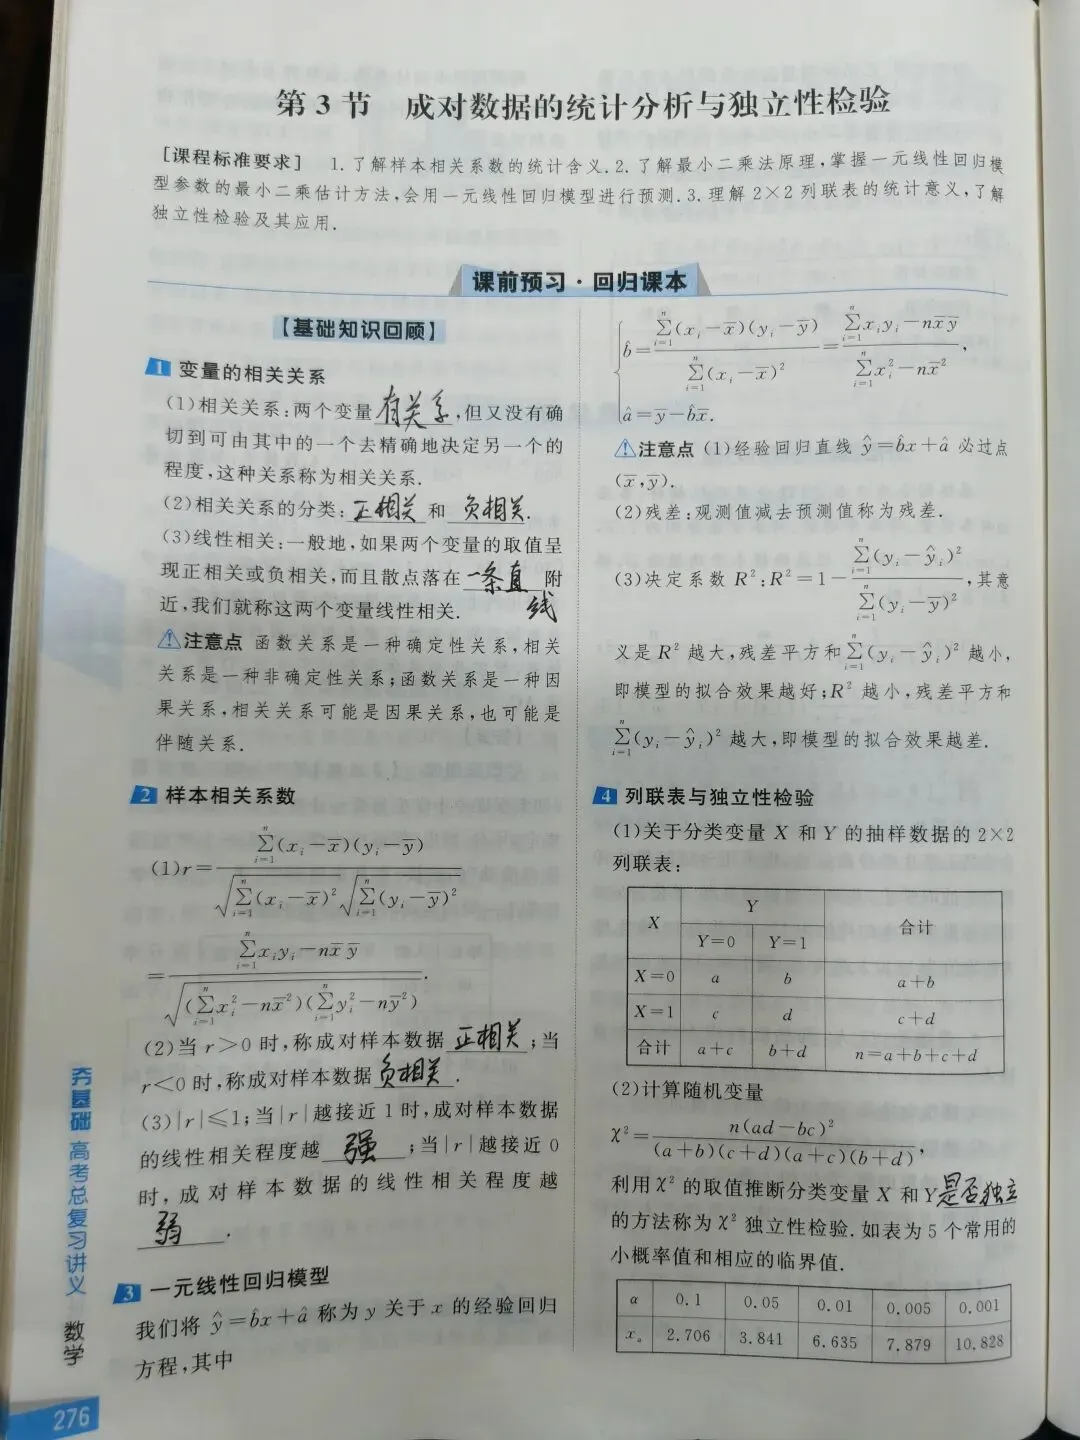 第3节 成对数据的统计分析与独立性检验
[课程标准要求] 1.了解样本相关系数的统计含义.2.了解最小二乘法原理,掌握一元线性回归模
型参数的最小二乘估计方法,会用一元线性回归模型进行预测.3.理解2×2列联表的统计意义,了解
独立性检验及其应用.
课前预习·回归课本
【基础知识回顾】
1 变量的相关关系
(1)相关关系:两个变量有关系,但又没有确
切到可由其中的一个去精确地决定另一个的
程度,这种关系称为相关关系.
(2)相关关系的分类:正相关和负相关.
(3)线性相关:一般地,如果两个变量的取值呈
现正相关或负相关,而且散点落在一条直线附
近,我们就称这两个变量线性相关.
注意点 函数关系是一种确定性关系,相关
关系是一种非确定性关系;函数关系是一种因
果关系,相关关系可能是因果关系,也可能是
伴随关系.
2 样本相关系数
(1)r=\frac{\sum_{i=1}^{n}(x_i-\overline{x})(y_i-\overline{y})}{\sqrt{\sum_{i=1}^{n}(x_i-\overline{x})^2}\sqrt{\sum_{i=1}^{n}(y_i-\overline{y})^2}}
=\frac{\sum_{i=1}^{n}x_iy_i-n\overline{x}\,\overline{y}}{\sqrt{(\sum_{i=1}^{n}x_i^2-n\overline{x}^2)(\sum_{i=1}^{n}y_i^2-n\overline{y}^2)}}.
(2)当r>0时,称成对样本数据正相关;当
r<0时,称成对样本数据负相关.
(3)|r|≤1;当|r|越接近1时,成对样本数据
的线性相关程度越强;当|r|越接近0
时,成对样本数据的线性相关程度越
弱.
3 一元线性回归模型
我们将ŷ=b̂x+â称为y关于x的经验回归
方程,其中
b̂=\frac{\sum_{i=1}^{n}(x_i-\overline{x})(y_i-\overline{y})}{\sum_{i=1}^{n}(x_i-\overline{x})^2}=\frac{\sum_{i=1}^{n}x_iy_i-n\overline{x}\,\overline{y}}{\sum_{i=1}^{n}x_i^2-n\overline{x}^2},
â=\overline{y}-b̂\overline{x}.
注意点 (1)经验回归直线ŷ=b̂x+â必过点
(\overline{x},\overline{y}).
(2)残差:观测值减去预测值称为残差.
(3)决定系数R²:R²=1-\frac{\sum_{i=1}^{n}(y_i-ŷ_i)^2}{\sum_{i=1}^{n}(y_i-\overline{y})^2},其意
义是R²越大,残差平方和\sum_{i=1}^{n}(y_i-ŷ_i)²越小,
即模型的拟合效果越好;R²越小,残差平方和
\sum_{i=1}^{n}(y_i-ŷ_i)²越大,即模型的拟合效果越差.
4 列联表与独立性检验
(1)关于分类变量X和Y的抽样数据的2×2
列联表:
X Y 合计
Y=0 Y=1
X=0 a b a+b
X=1 c d c+d
合计 a+c b+d n=a+b+c+d
(2)计算随机变量
χ²=\frac{n(ad-bc)^2}{(a+b)(c+d)(a+c)(b+d)},
利用χ²的取值推断分类变量X和Y是否独立
的方法称为χ²独立性检验.如表为5个常用的
小概率值和相应的临界值.
α 0.1 0.05 0.01 0.005 0.001
xₐ 2.706 3.841 6.635 7.879 10.828
夯基础 高考总复习讲义 数学
276